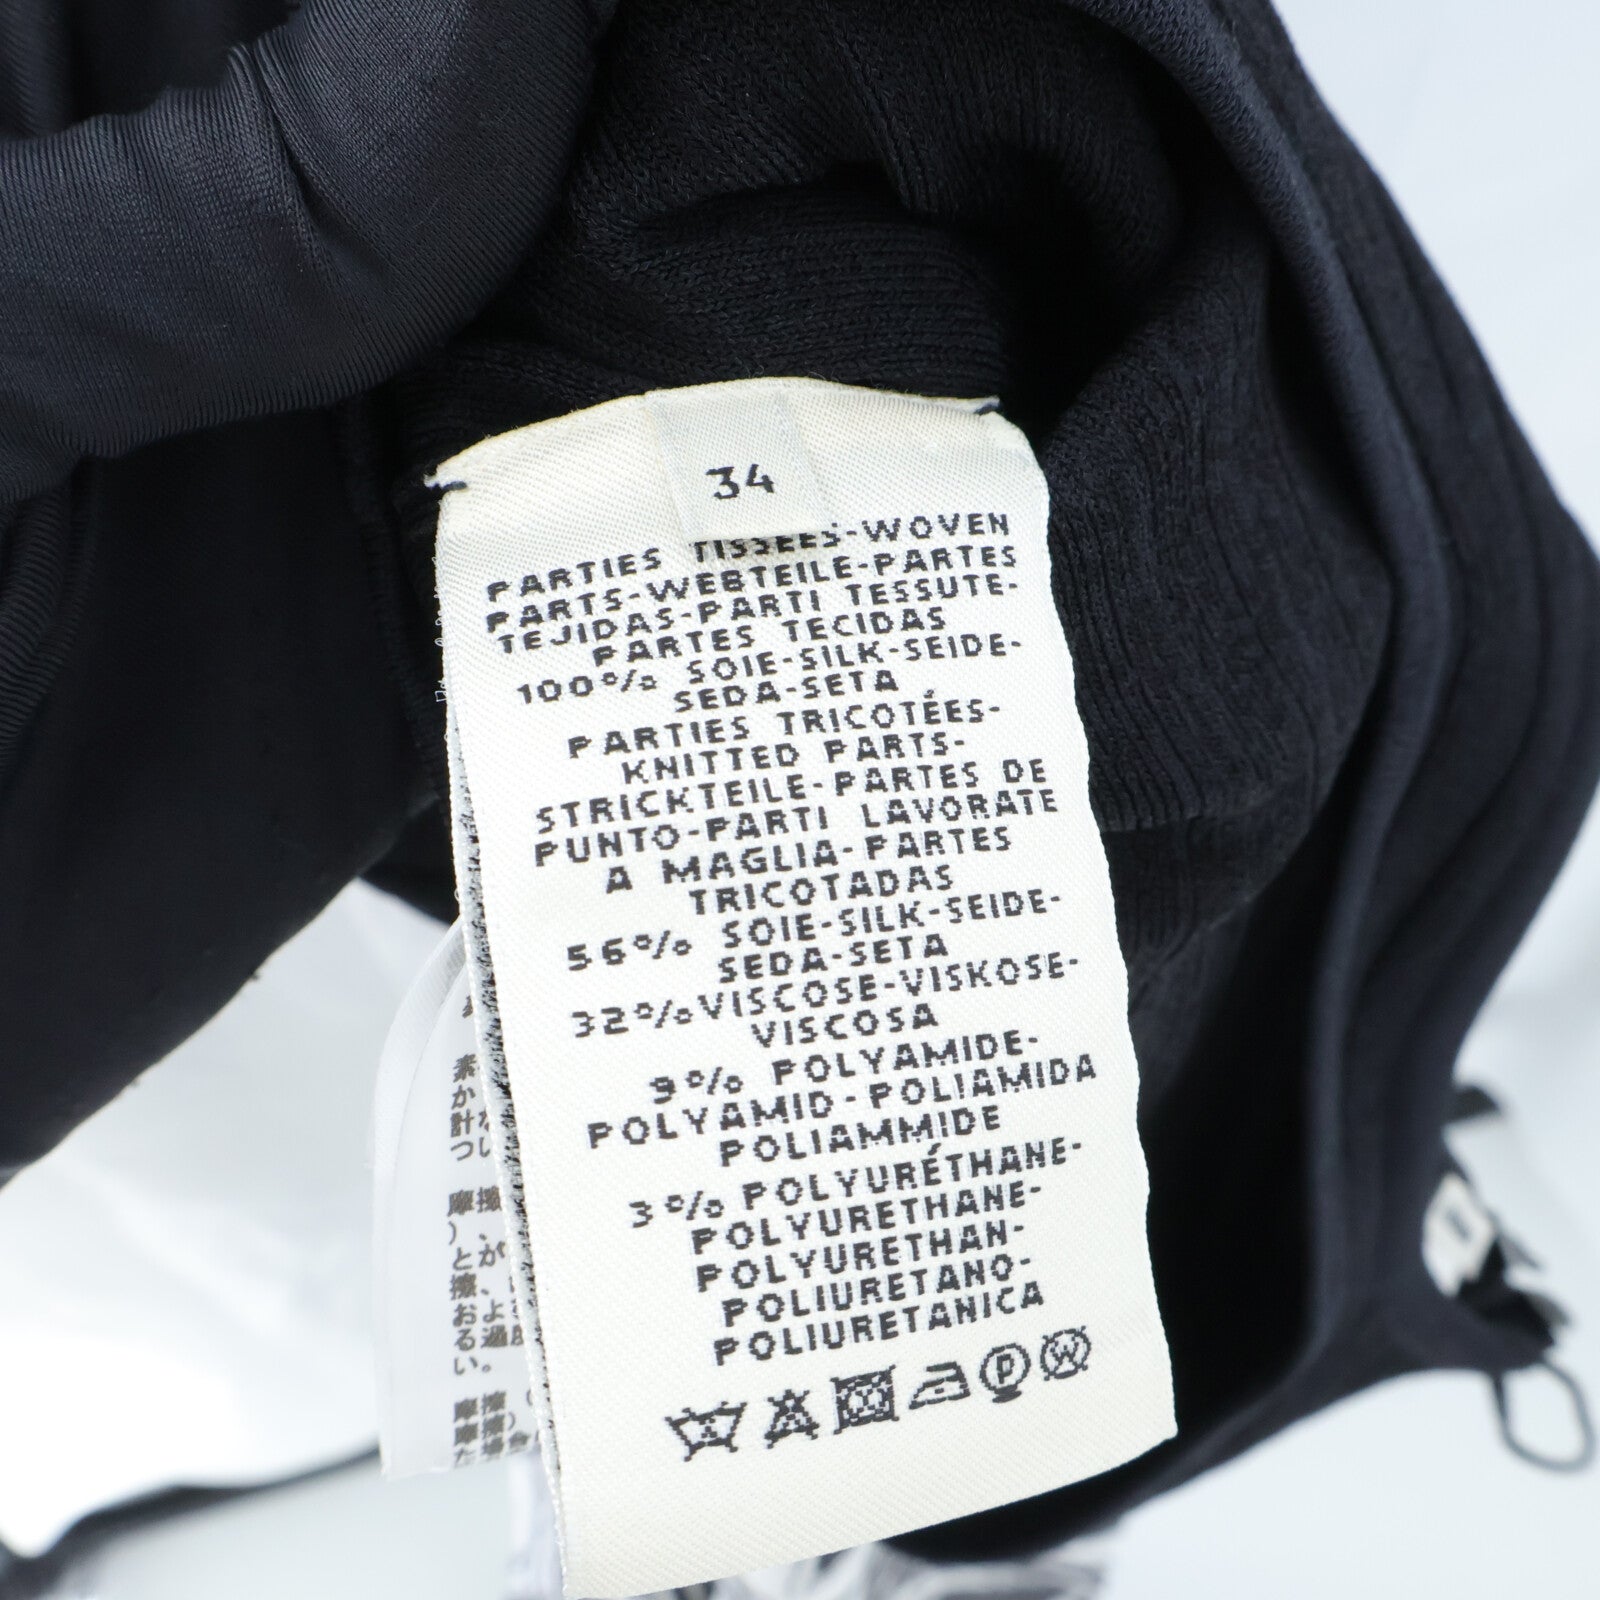 34
PARTIES TISSÉES-WOVEN
PARTS-WEBTEILE-PARTES
TEJIDAS-PARTI TESSUTE-
PARTES TECIDAS
100% SOIE-SILK-SEIDE-
SEDA-SETA
PARTIES TRICOTÉES-
KNITTED PARTS-
STRICKTEILE-PARTES DE
PUNTO-PARTI LAVORATE
A MAGLIA-PARTES
TRICOTADAS
56% SOIE-SILK-SEIDE-
SEDA-SETA
32% VISCOSE-VISKOSE-
VISCOSA
9% POLYAMIDE-
POLYAMID-POLIAMIDA
POLIAMMIDE
3% POLYURÉTHANE-
POLYURETHANE-
POLYURETHAN-
POLIURETANO-
POLIURETANICA
P W